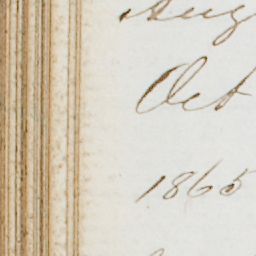 Aug
Oct
1865